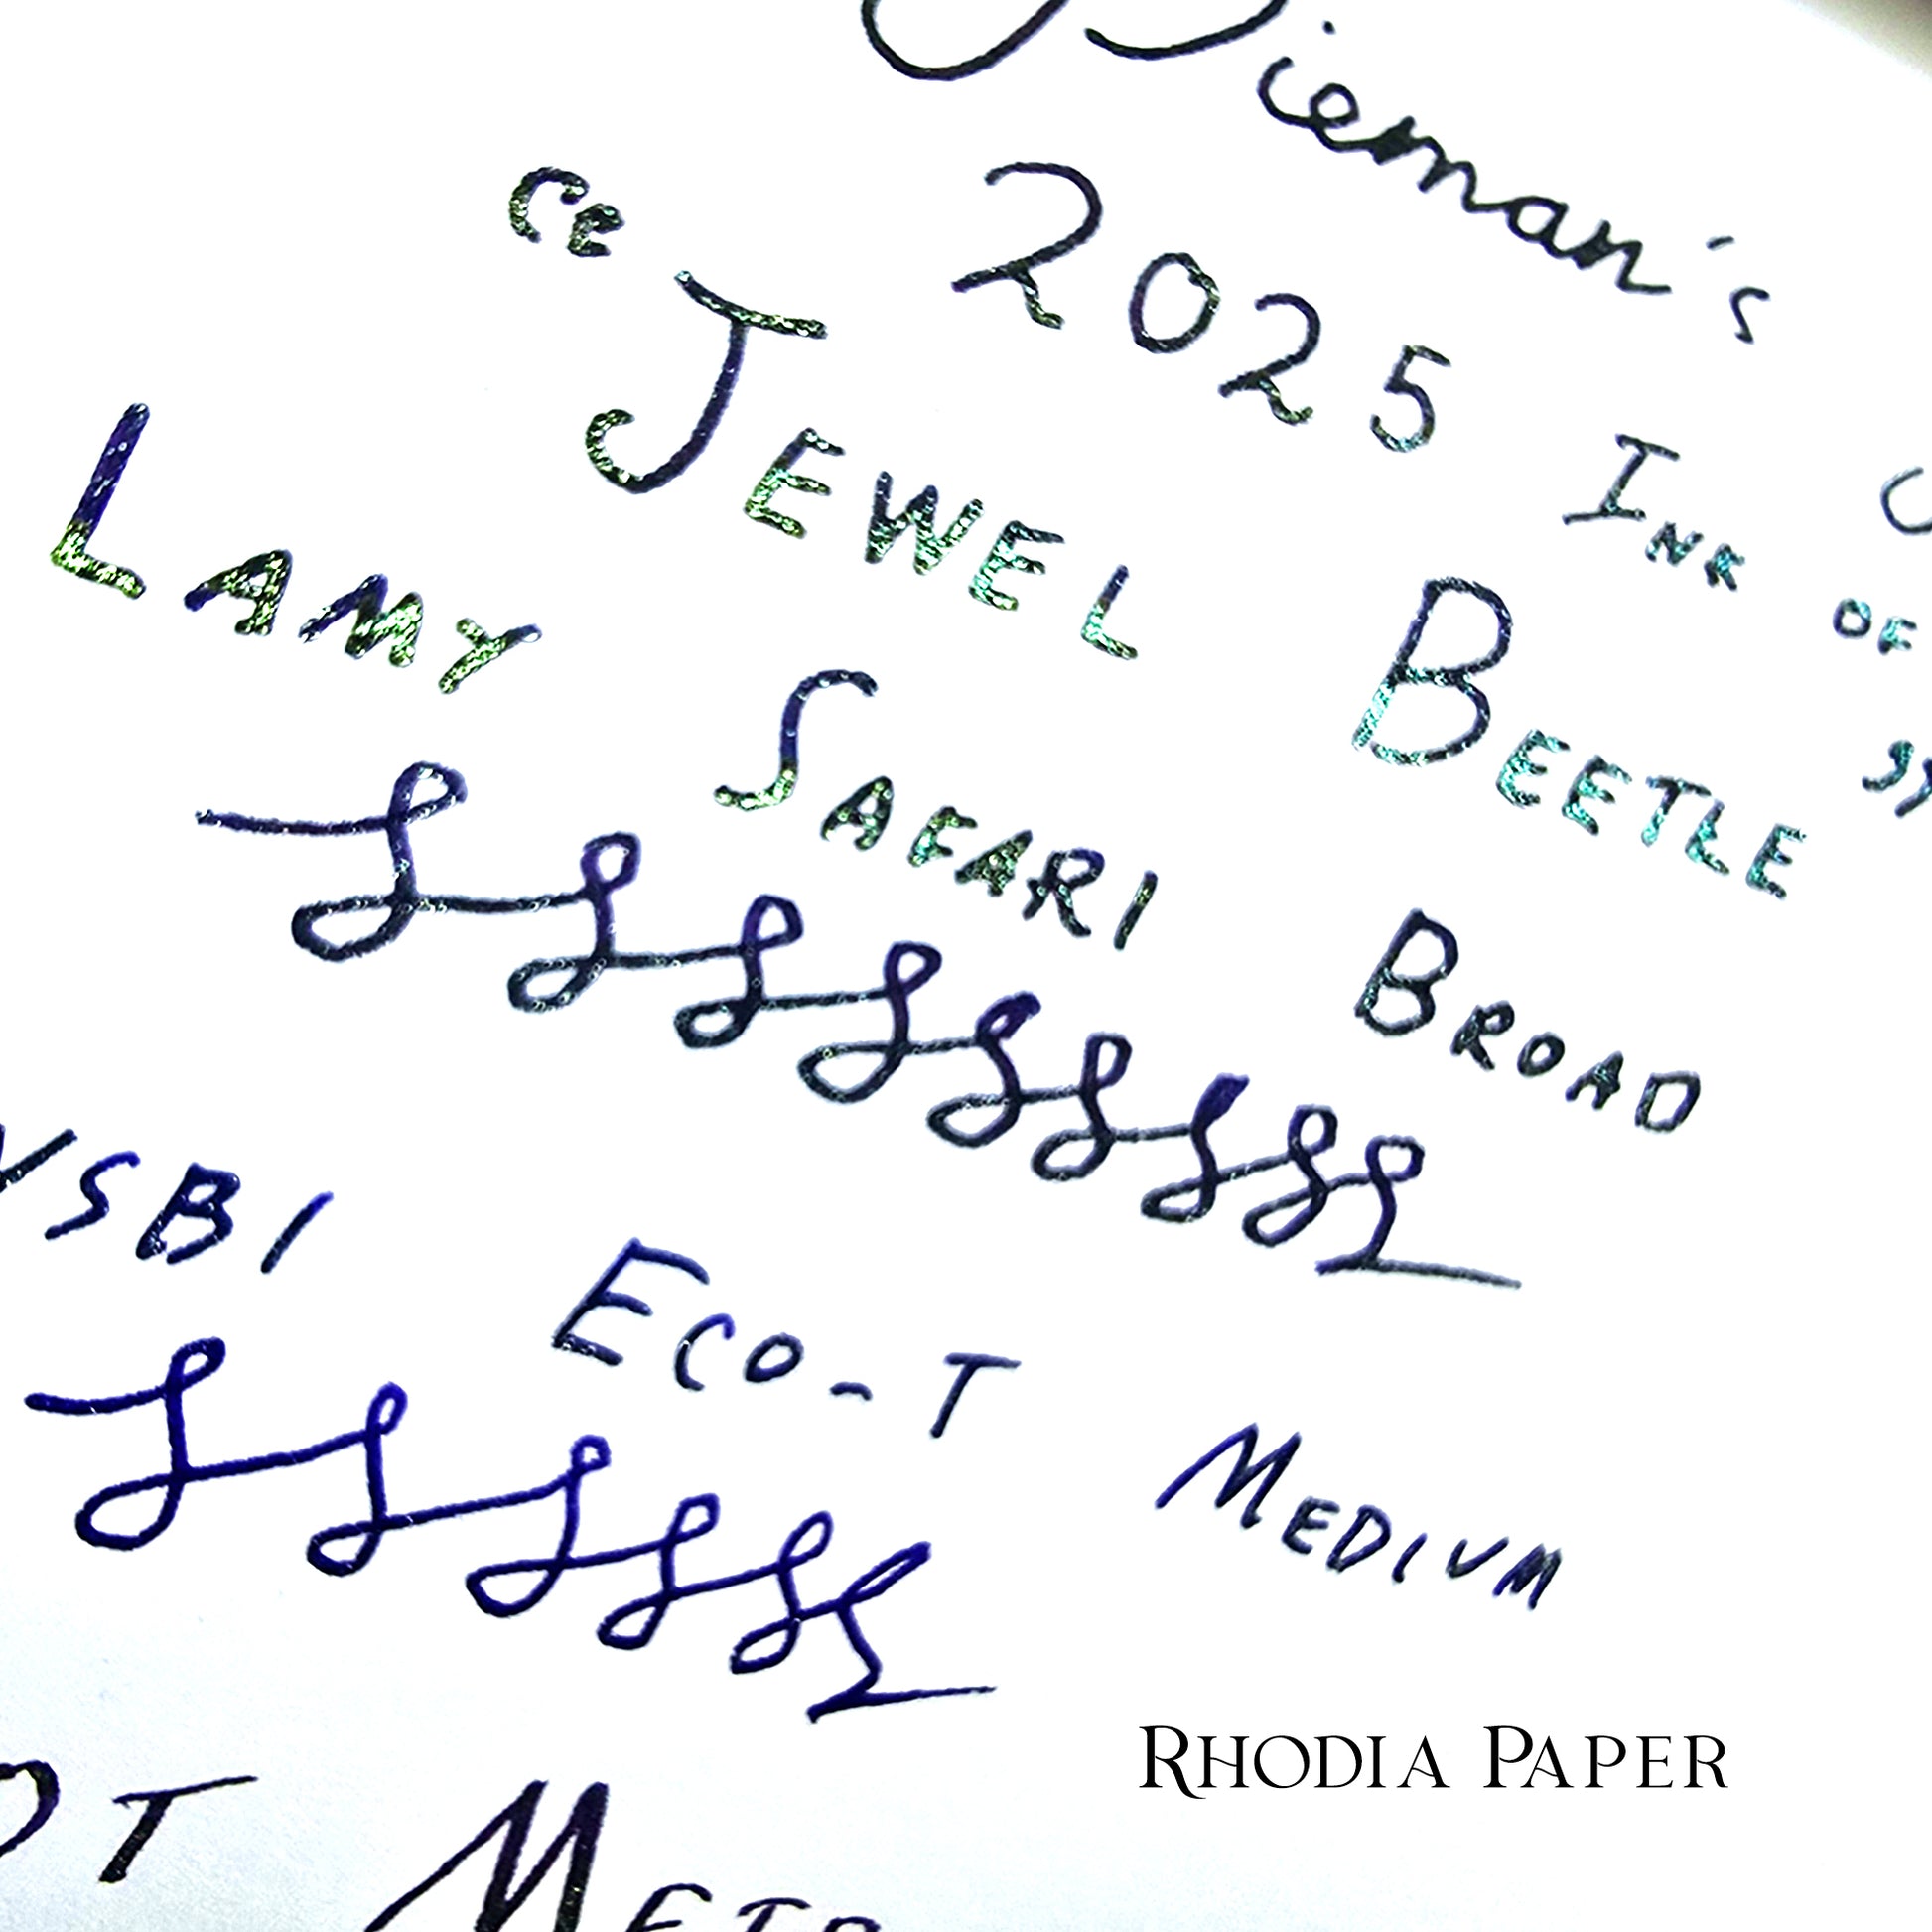 Dieman's
2025 Ink of
“Jewel Beetle”
Lamy Safari Broad
VSBI Eco-T Medium
OT Metr
Rhodia Paper